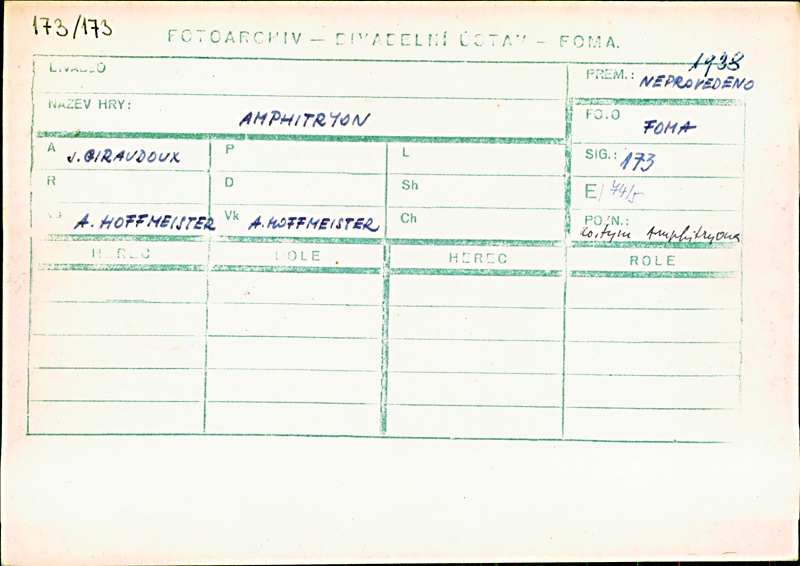 173/173
FOTOARCHIV — DIVADELNÍ ÚSTAV — FOMA.
DIVADLO
PREM.: 1938
NEPROVEDENO
NÁZEV HRY: AMPHITRYON
FOTO
FOMA
A J. GIRAUDOUX P L
SIG.: 173
R D Sh
E/74/5
A. HOFFMEISTER Vk A. HOFFMEISTER Ch
POZN.:
kostým Amphitryona
HEREC ROLE HEREC ROLE